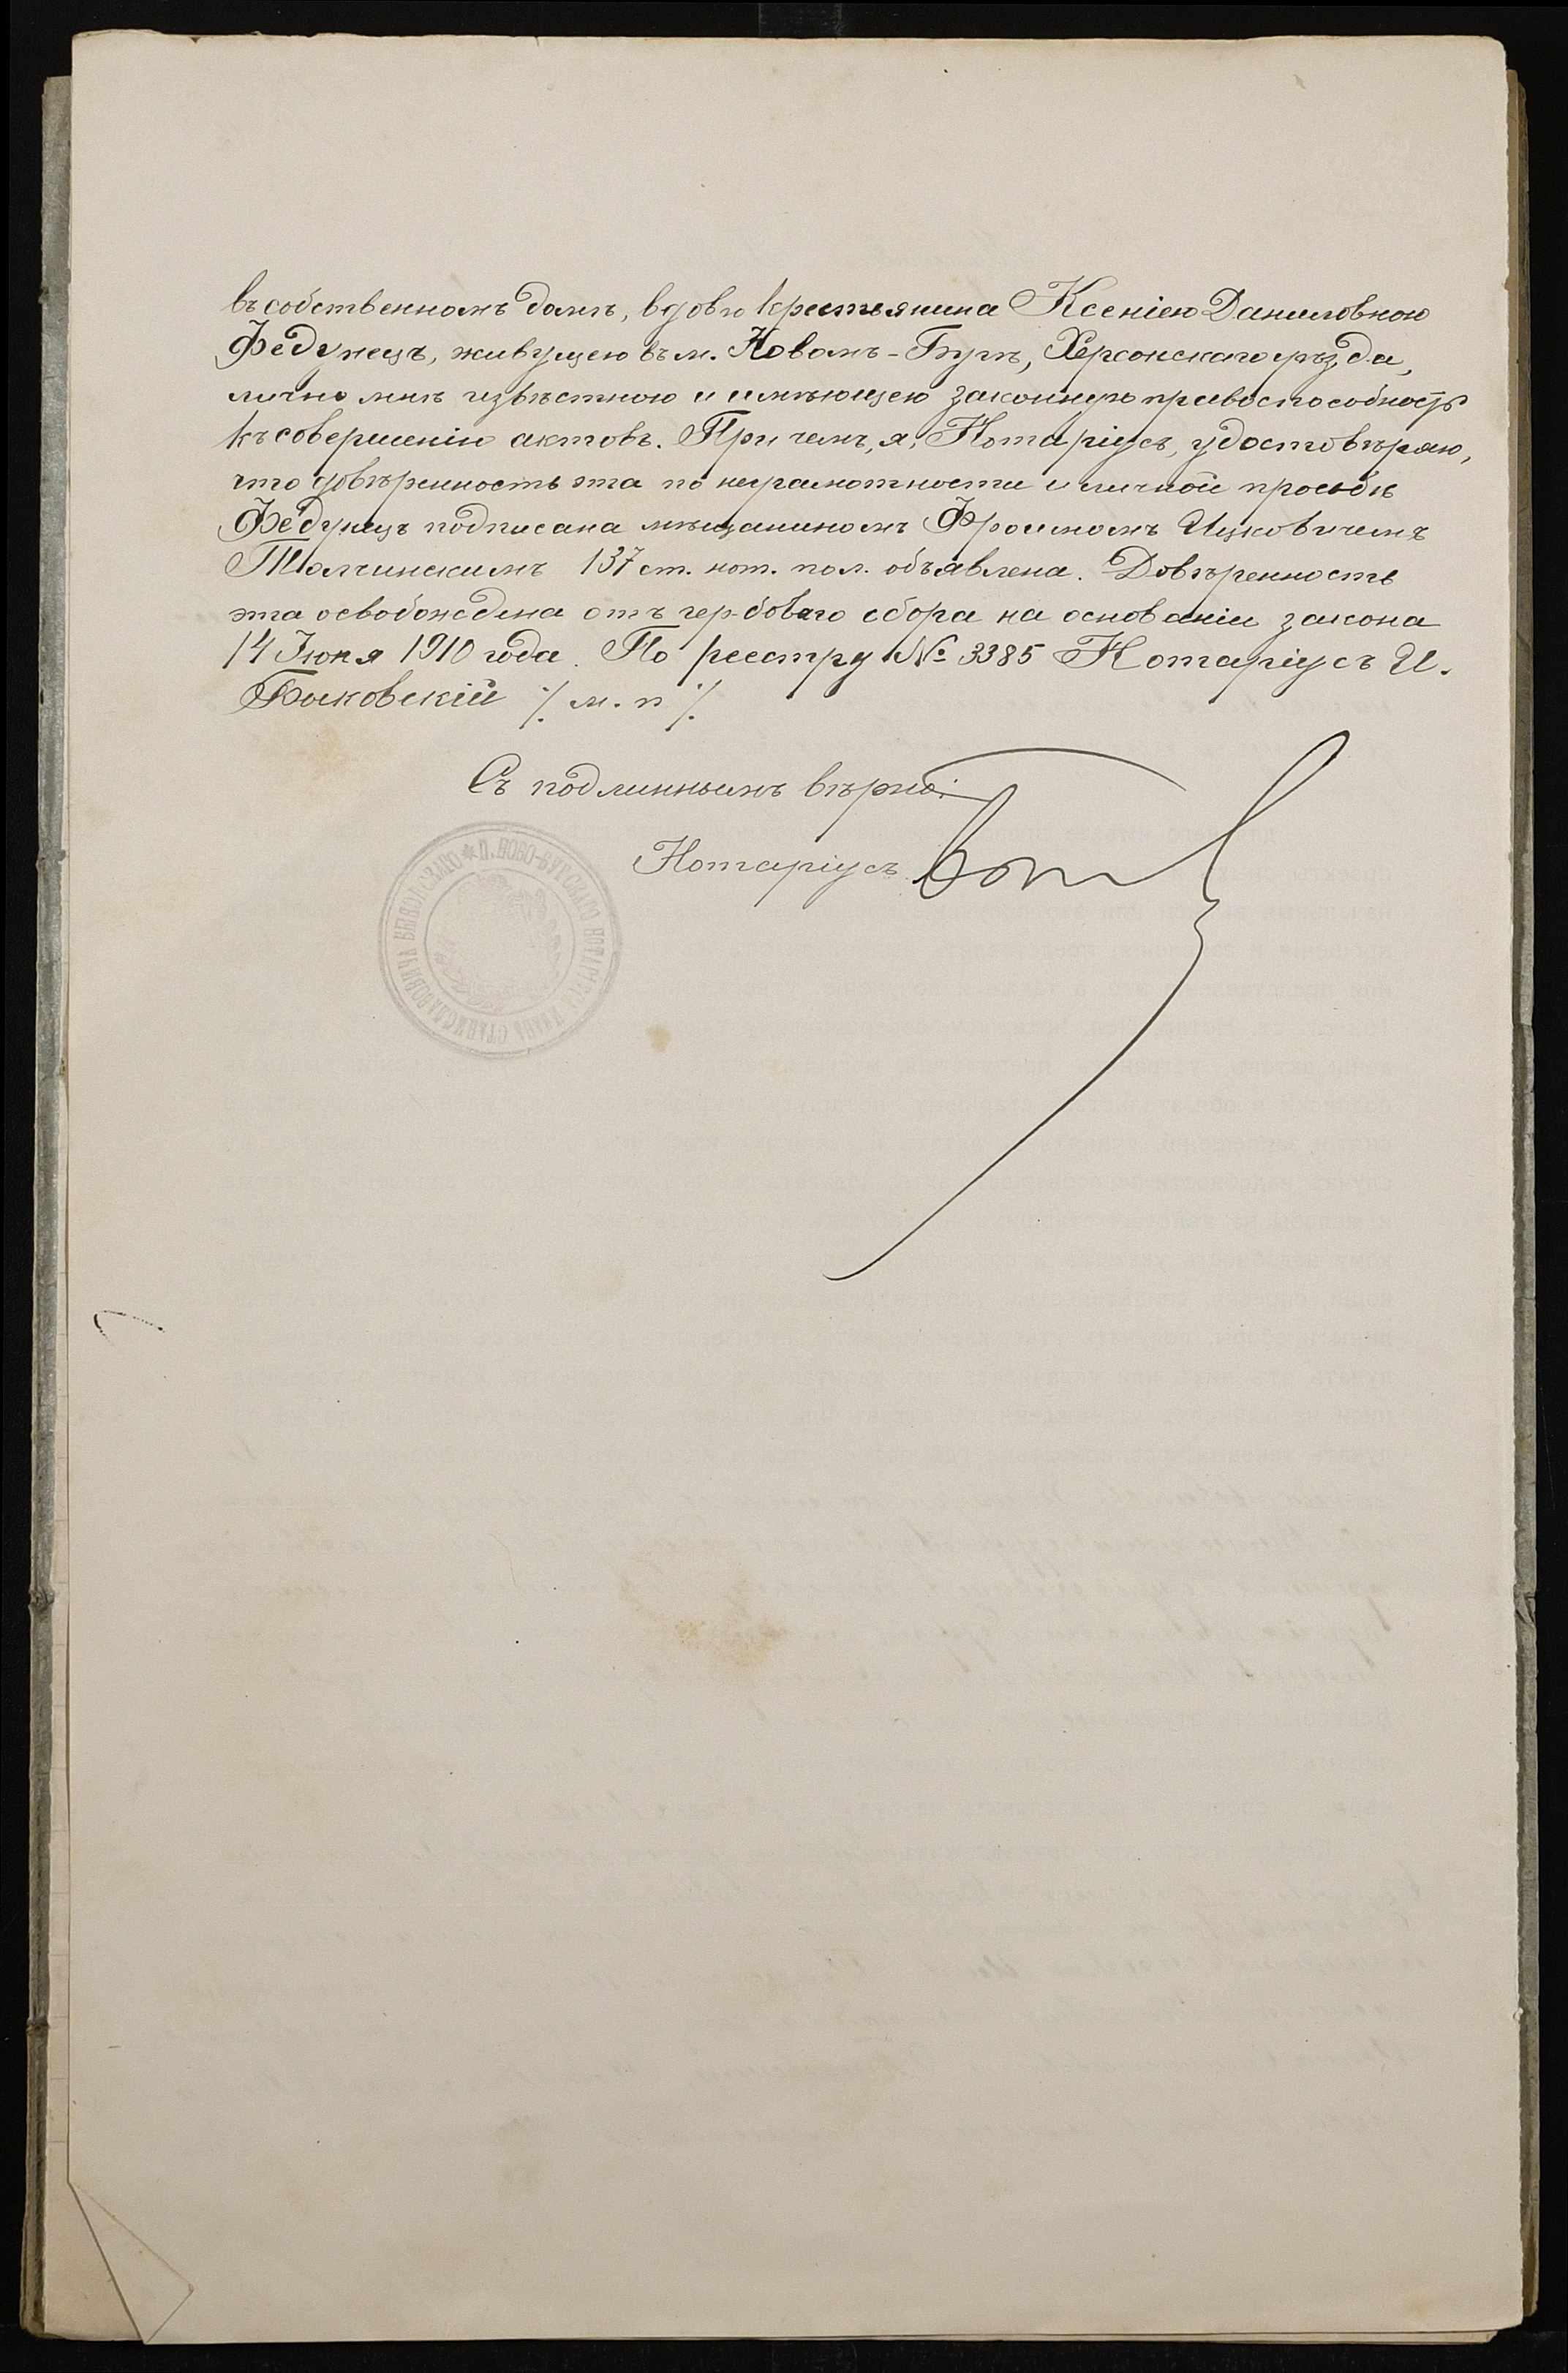 въ собственномъ домѣ, вдовѣ крестьянина Ксеніею Даниловною
Федунецъ, живущею въ м. Новомъ-Бугѣ, Херсонскаго уѣзда,
лично мнѣ извѣстною и имѣющею законную правоспособность
къ совершенію актовъ. При чемъ, я, Нотаріусъ, удостовѣряю,
что довѣренность эта по неграмотности и личной просьбѣ
Федунецъ подписана мѣщаниномъ Фроимомъ Ицковичемъ
Толчинскимъ 137 ст. нот. пол. объявлена. Довѣренность
эта освобождена отъ гербоваго сбора на основаніи закона
14 Іюня 1910 года. По реестру № 3385 Нотаріусъ И.
Быковскій ·/. м. п ·/.
Съ подлиннымъ вѣрно:
Нотаріусъ
П. НОВО-БУГСКАГО НОТАРІУСА ИВАНЪ СТАНИСЛАВОВИЧА